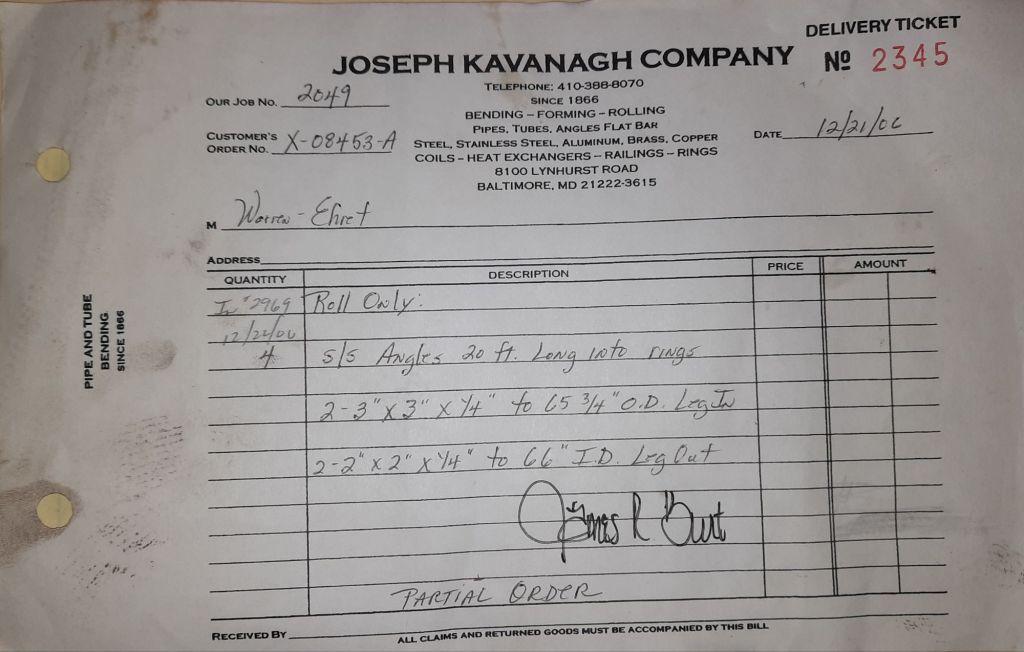 DELIVERY TICKET
JOSEPH KAVANAGH COMPANY
Nº 2345
TELEPHONE: 410-388-8070
SINCE 1866
OUR JOB NO. 2049
BENDING – FORMING – ROLLING
PIPES, TUBES, ANGLES FLAT BAR
CUSTOMER'S ORDER NO. X-08453-A
STEEL, STAINLESS STEEL, ALUMINUM, BRASS, COPPER
DATE 12/21/06
COILS – HEAT EXCHANGERS – RAILINGS – RINGS
8100 LYNHURST ROAD
BALTIMORE, MD 21222-3615
M Warren-Ehret
ADDRESS
QUANTITY DESCRIPTION PRICE AMOUNT
In # 2969 Roll Only:
12/22/06
4 s/s Angles 20 ft. Long into rings
2-3" x 3" x 1/4" to 65 3/4" O.D. Leg In
2-2" x 2" x 1/4" to 66" I.D. Leg Out
James R Burt
PARTIAL ORDER
RECEIVED BY
ALL CLAIMS AND RETURNED GOODS MUST BE ACCOMPANIED BY THIS BILL
PIPE AND TUBE
BENDING
SINCE 1866